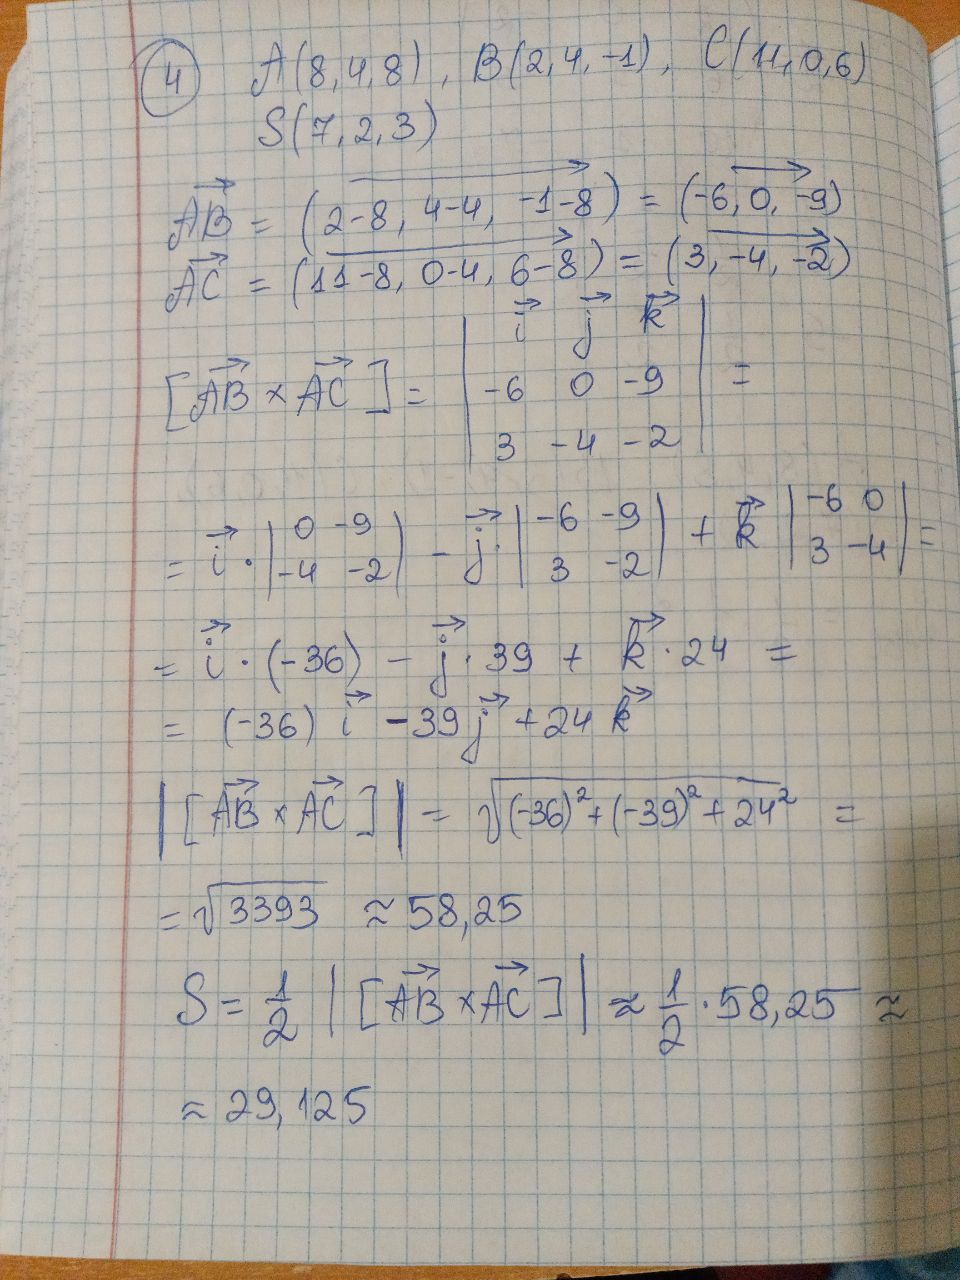 4 A(8,4,8), B(2,4,-1), C(11,0,6)
S(7,2,3)
AB = (2-8, 4-4, -1-8) = (-6, 0, -9)
AC = (11-8, 0-4, 6-8) = (3, -4, -2)
i j k
[AB × AC] = | -6 0 -9 | =
3 -4 -2
= i · | 0 -9 | - j · | -6 -9 | + k | -6 0 | =
-4 -2 3 -2 3 -4
= i · (-36) - j · 39 + k · 24 =
= (-36) i - 39 j + 24 k
|[AB × AC]| = √(-36)² + (-39)² + 24² =
= √3393 ≈ 58,25
S = 1/2 |[AB × AC]| ≈ 1/2 · 58,25 ≈
≈ 29,125